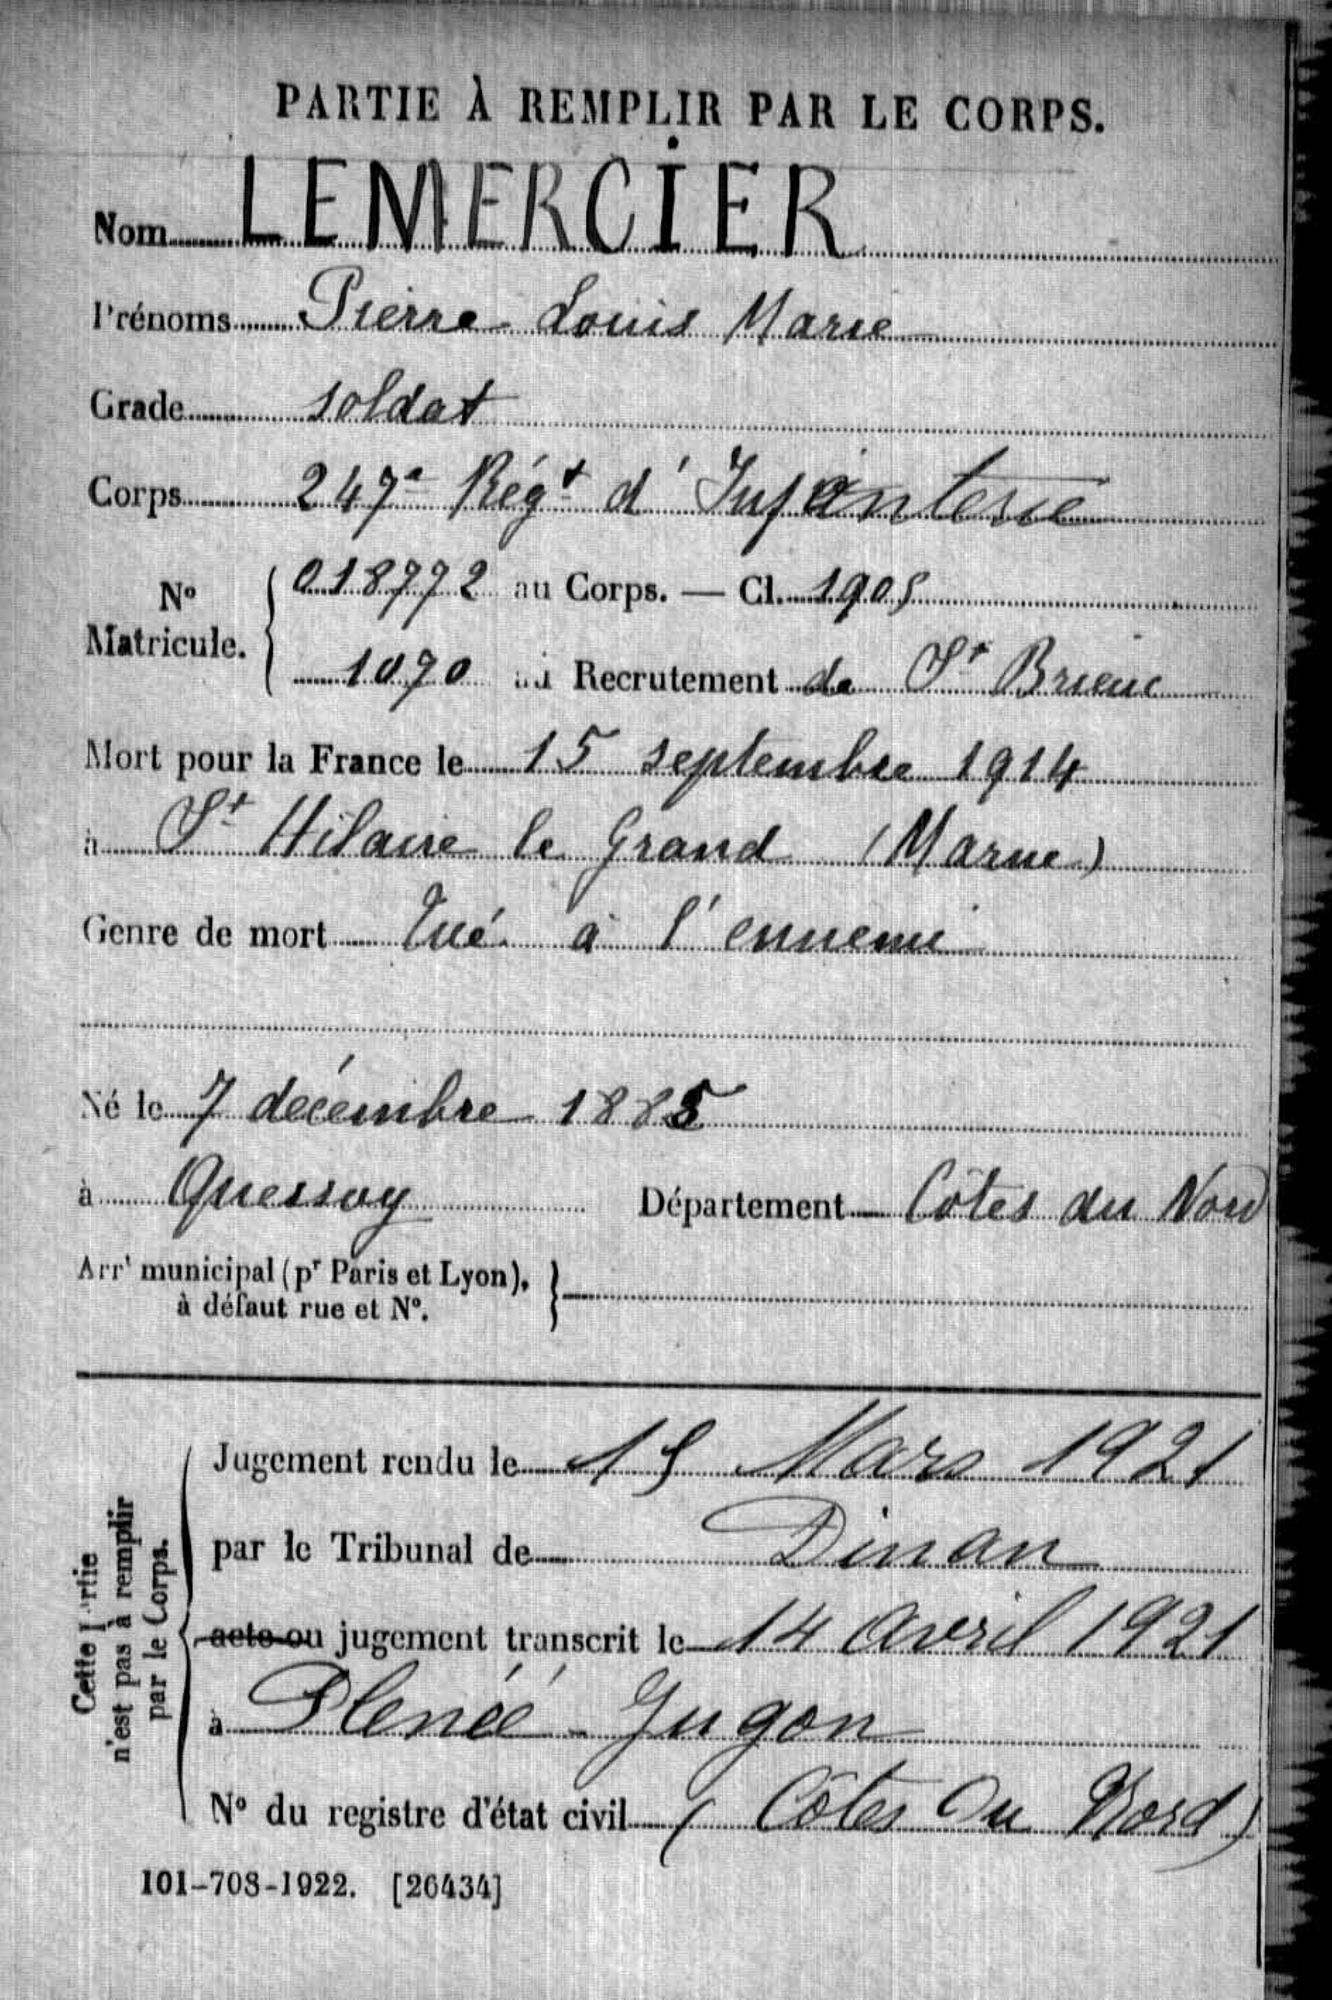 PARTIE À REMPLIR PAR LE CORPS.
Nom LEMERCIER
Prénoms Pierre Louis Marie
Grade soldat
Corps 247e Régt d'Infanterie
No Matricule. { 018772 au Corps. — Cl. 1905
1070 au Recrutement de St Brieuc
Mort pour la France le 15 septembre 1914
à St Hilaire le Grand (Marne)
Genre de mort Tué à l'ennemi
Né le 7 décembre 1885
à Quessoy Département Côtes du Nord
Arrt municipal (pr Paris et Lyon), à défaut rue et No. }
Cette Partie n'est pas à remplir par le Corps.
Jugement rendu le 15 Mars 1921
par le Tribunal de Dinan
acte ou jugement transcrit le 14 avril 1921
à Plénée-Jugon
No du registre d'état civil (Côtes du Nord)
101-708-1922. [26434]